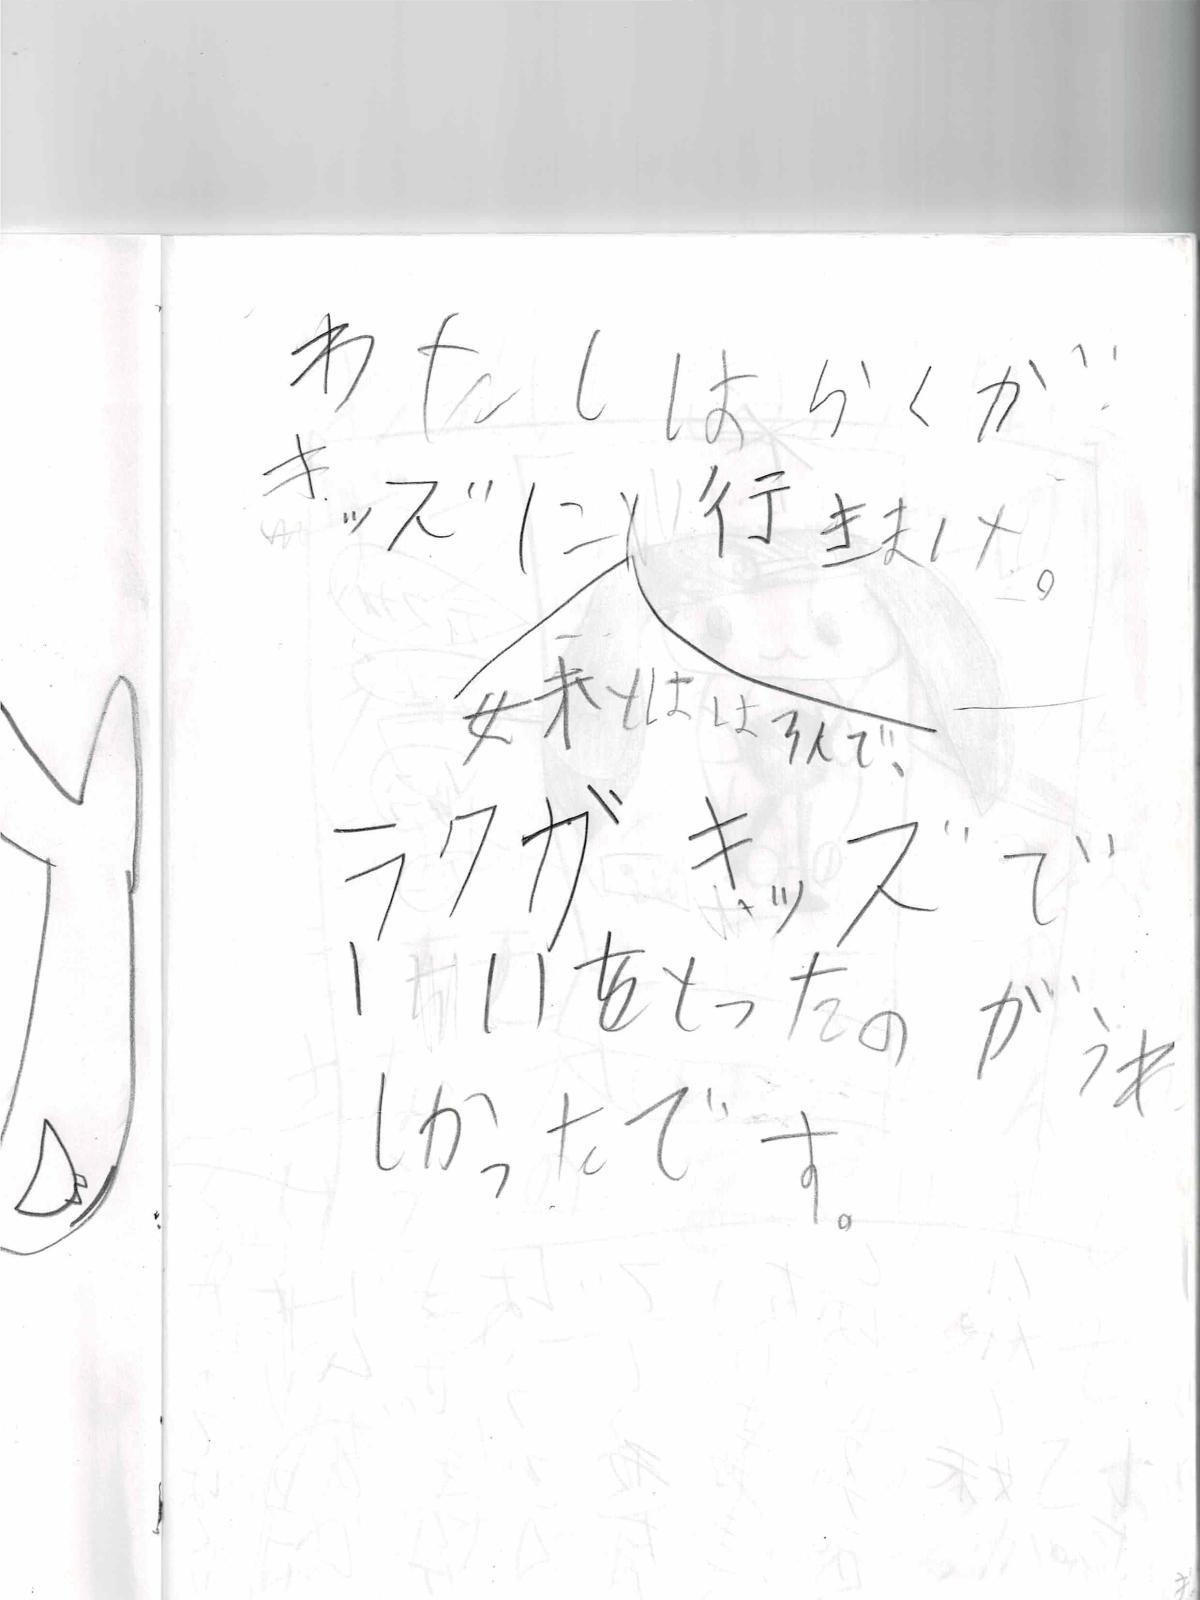 わたしはらくが
キッズに行きました。
妹とはは3人で、
ラクガキッズで
1いをとったのがうれ
しかったです。